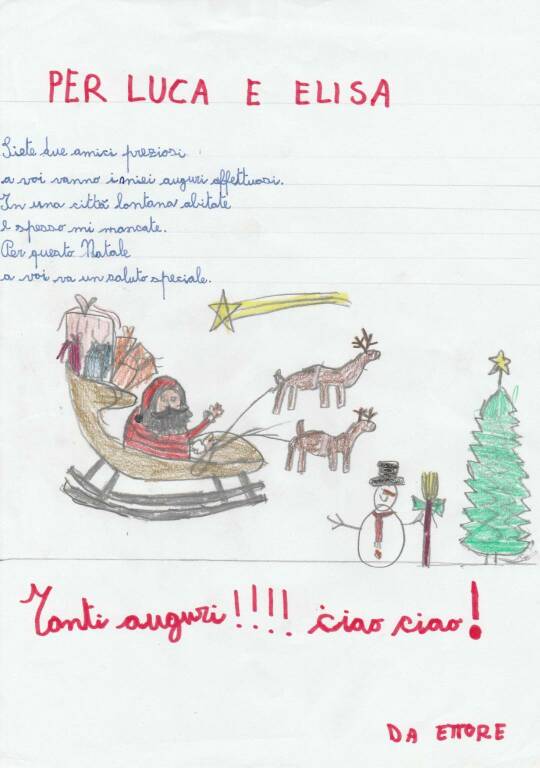 PER LUCA E ELISA
Siete due amici preziosi
a voi vanno i miei auguri affettuosi.
In una città lontana abitate
e spesso mi mancate.
Per questo Natale
a voi va un saluto speciale.
Tanti auguri!!!! ciao ciao!
DA ETTORE